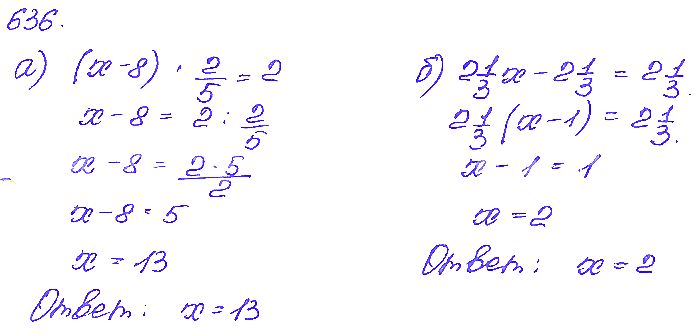 636.
а) (x-8) · 2/5 = 2
x-8 = 2 : 2/5
x-8 = 2·5/2
x-8 = 5
x = 13
Ответ: x = 13
б) 2 1/3 x - 2 1/3 = 2 1/3.
2 1/3 (x-1) = 2 1/3.
x - 1 = 1
x = 2
Ответ: x = 2